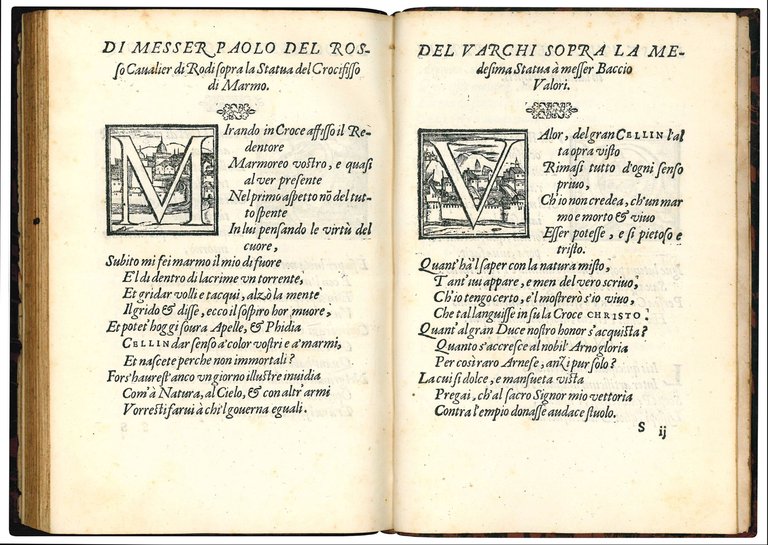 DI MESSER PAOLO DEL ROS-
so Caualier di Rodi sopra la Statua del Crocifisso
di Marmo.
MIrando in Croce affisso il Re-
dentore
Marmoreo vostro, e quasi
al ver presente
Nel primo aspetto nõ del tut-
to spente
In lui pensando le virtù del
cuore,
Subito mi fei marmo il mio di fuore
E'l di dentro di lacrime vn torrente,
Et gridar volli e tacqui, alzò la mente
Il grido & disse, ecco il sospiro hor, muore,
Et potet' hoggi soura Apelle, & Phidia
CELLIN dar senso a' color vostri e a' marmi,
Et nascete perche non immortali?
Fors' haurest' anco vn giorno illustre inuidia
Com' à Natura, al Cielo, & con altr' armi
Vorresti farui à chi'l gouerna eguali.
S
DEL VARCHI SOPRA LA ME-
desima Statua à messer Baccio
Valori.
VAlor, del gran CELLIN l'al
ta opra visto
Rimasi tutto d'ogni senso
priuo,
Ch'io non credea, ch'un mar
mo e morto & viuo
Esser potesse, e si pietoso e
tristo.
Quant' hà'l saper con la natura misto,
Tant' iui appare, e men del vero scriuo;
Ch'io tengo certo, e'l mostrerò s'io viuo,
Che tal languisse in su la Croce CHRISTO.
Quant' al gran Duce nostro honor s'acquista?
Quanto s'accresce al nobil' Arno gloria
Per così raro Arnese, anzi pur solo?
La cui si dolce, e mansueta vista
Pregai, ch'al sacro Signor mio vettoria
Contra l'empio donasse audace stuolo.
S ij